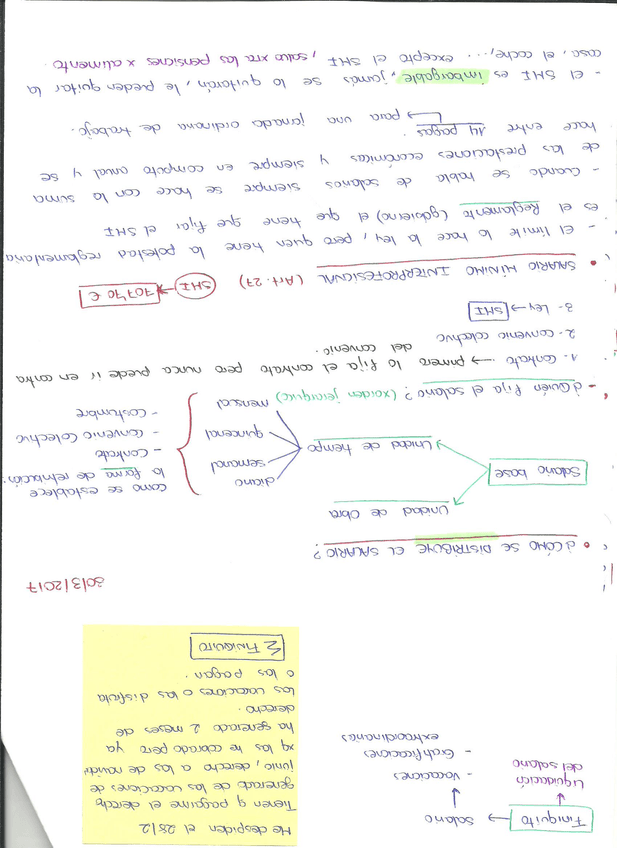 Finiquito → salario
Liquidación
del salario
- Vacaciones
- Gratificaciones
extraordinarias
Me despiden el 28/2
Tienen q pagarme el derecho
generado de las vacaciones de
junio, derecho a las de navidad
xq las he cobrado pero ya
ha generado 2 meses de
derecho.
Las vacaciones o las disfruta
o las pagan.
FINIQUITO
30/3/2017
• ¿CÓMO SE DISTRIBUYE EL SALARIO?
Salario base
Unidad de Obra
Unidad de tiempo
diario
semanal
quincenal
mensual
como se establece
la forma de retribución.
- Contrato
- Convenio Colectivo
- Costumbre
- ¿Quién fija el salario? (x orden jerárquico)
1- Contrato → primero lo fija el contrato pero nunca puede ir en contra
del convenio.
2- convenio colectivo
3- Ley → SMI
• SALARIO MÍNIMO INTERPROFESIONAL (Art. 27) SMI → 707'70 €
- El límite lo hace la ley, pero quien tiene la potestad reglamentaria
es el Reglamento (gobierno) el que tiene que fijar el SMI
- Cuando se habla de salarios siempre se hace con la suma
de las prestaciones económicas y siempre en computo anual y se
hace entre 14 pagas.
→ para una jornada ordinaria de trabajo.
- El SMI es imbargable, jamás se lo quitarán, le pueden quitar la
casa, el coche,... excepto el SMI, salvo xra las pensiones x alimento.